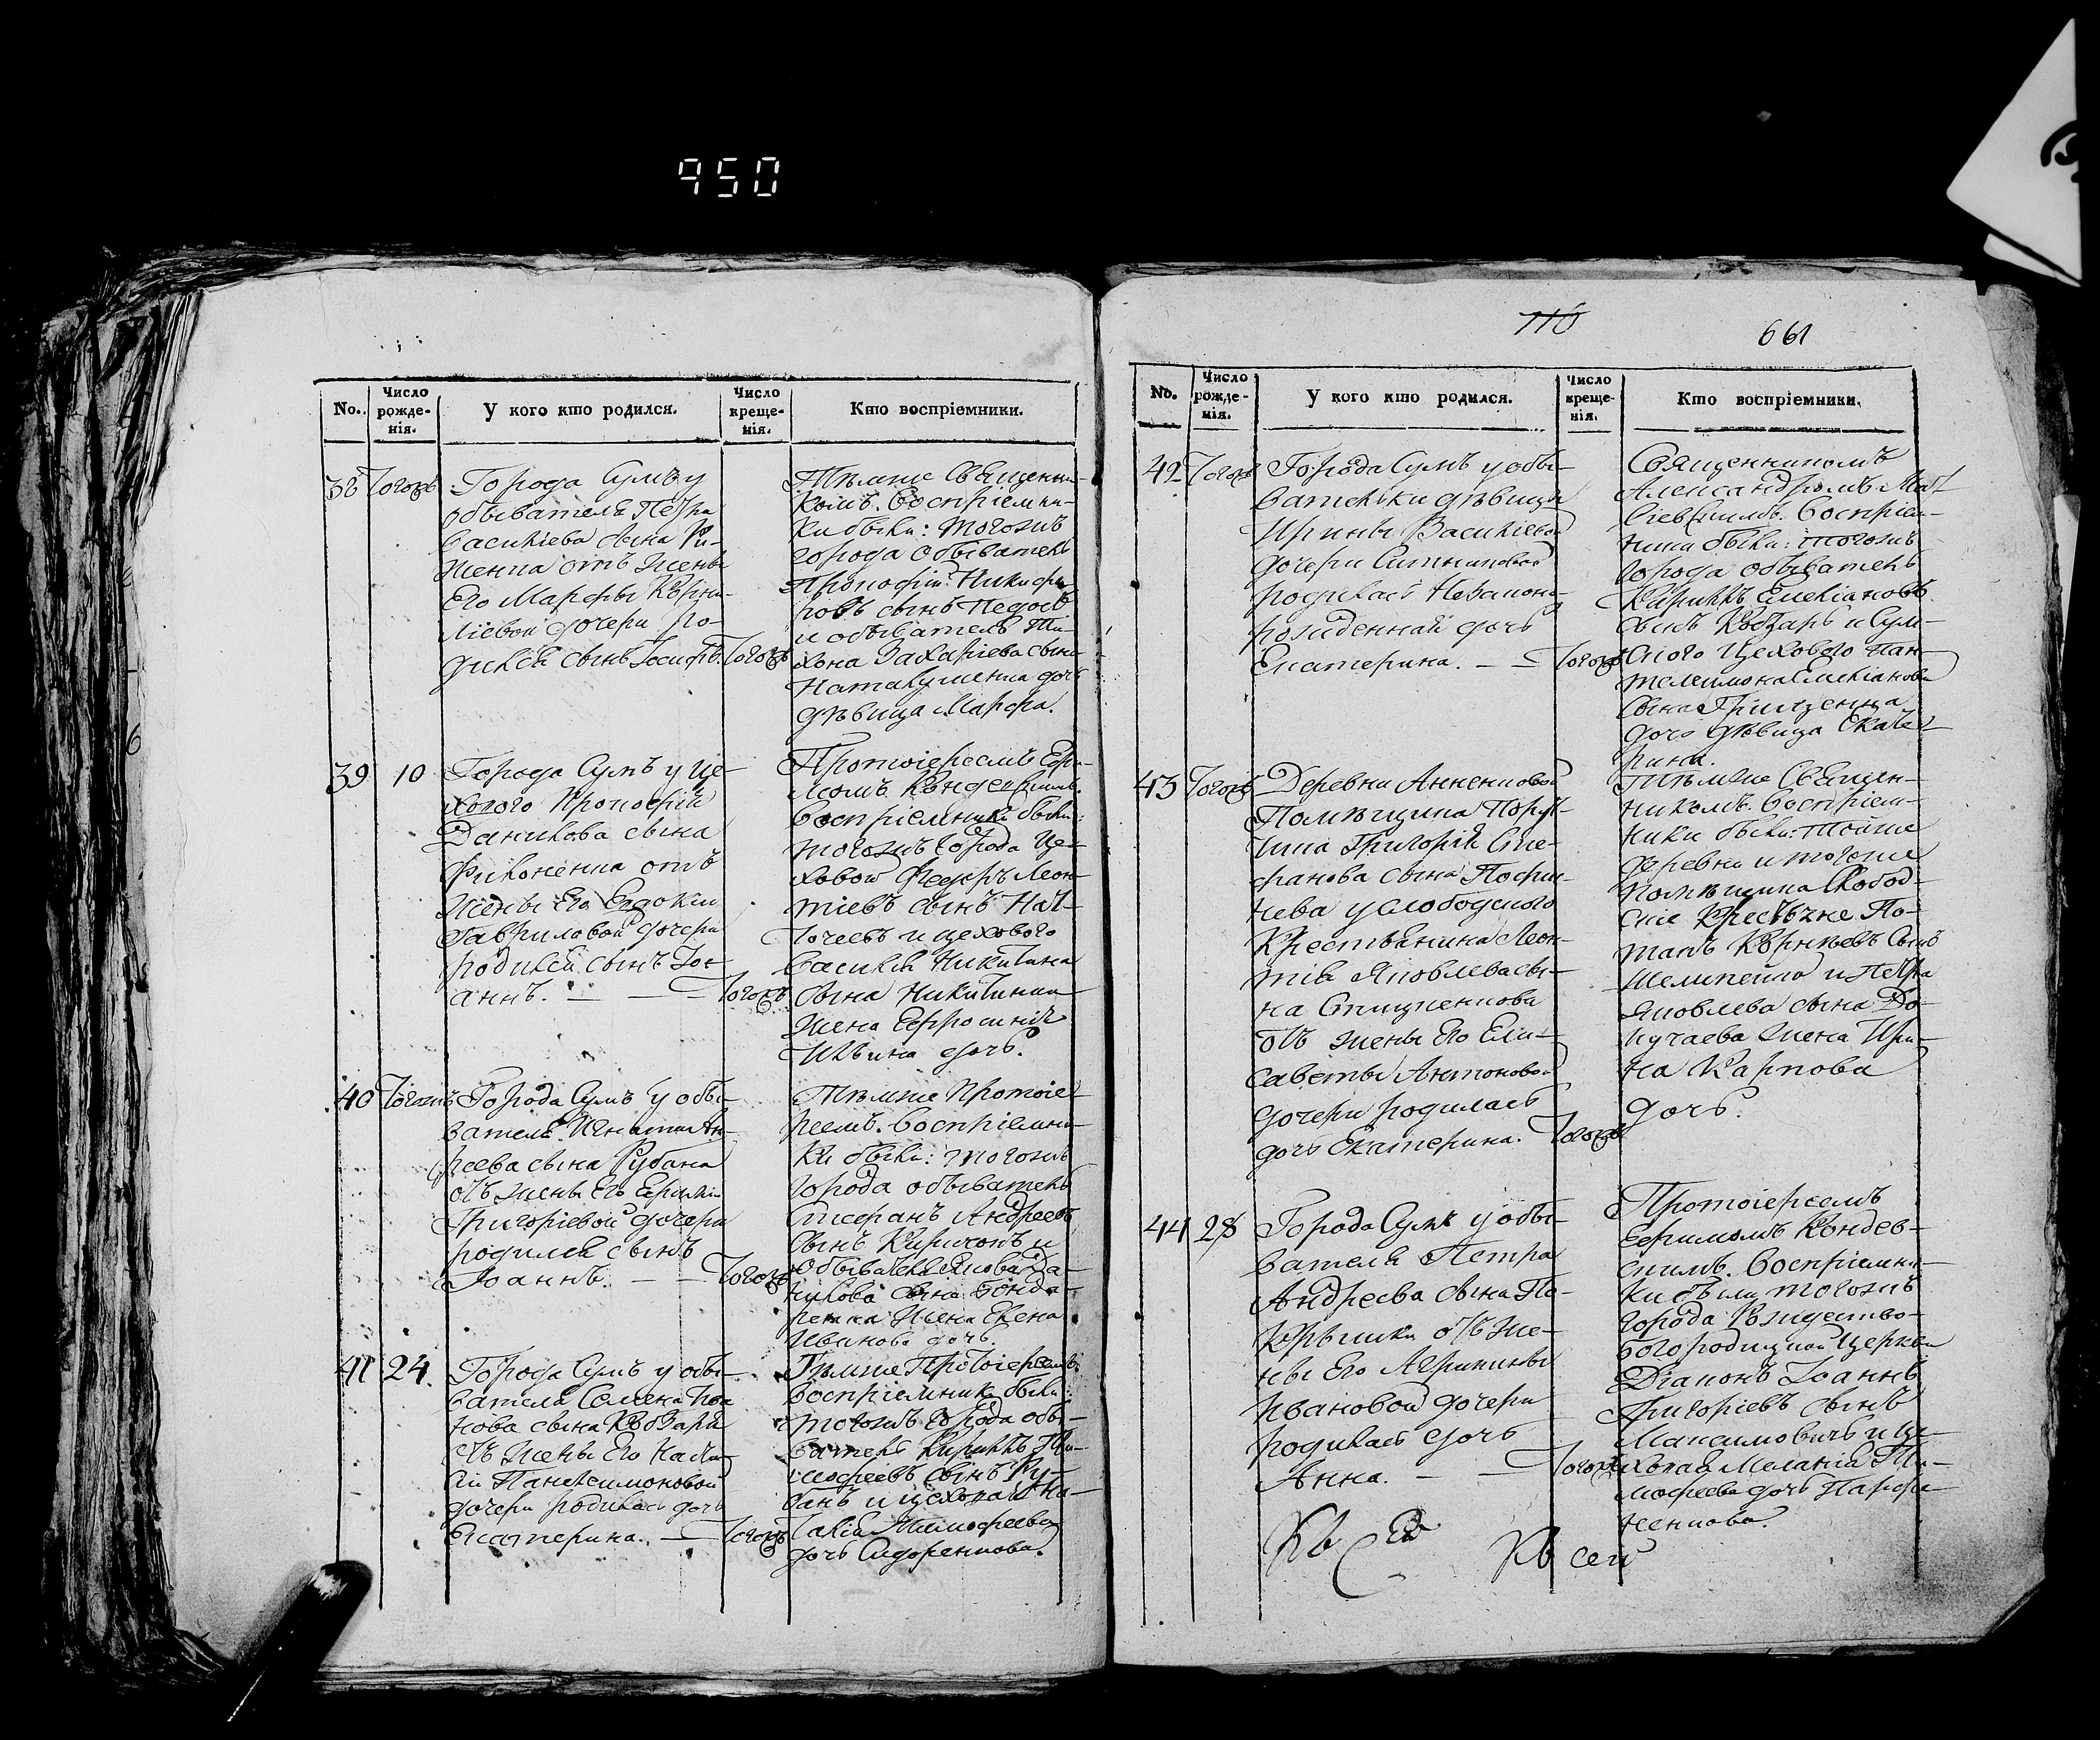 950
No.
Число рожде-нія.
У кого кто родился.
Число креще-нія.
Кто воспріемники.
38 Тогожъ
Города Сумъ у
обывателя Петра
Василіева сына
женка отъ жены
Его Марфы Корни-
ліевой дочери ро-
дился сынъ Іосифъ. Тогожъ
Тѣмже Священни-
комъ. Воспріемни-
ки были: тогожъ
города обыватель
Прокофій Никифо-
ровъ сынъ
и обывателя Ти-
хона Захаріева сына
дочь
дѣвица Марфа.
39 10
Города Сумъ у Це-
хового Прокофія
Данилова сына
Филоненка отъ
жены Его Евдокіи
Гавриловой дочери
родился сынъ Іо-
аннъ. — — — Тогожъ
Протоіереемъ Ефи-
момъ Кондевскимъ.
Воспріемники были:
тогожъ города Це-
ховой Федоръ Леон-
тіевъ сынъ
и цехового
Василія Никитина
сына
жена Евфросинія
Ильина дочь.
40 Тогожъ
Города Сумъ у обы-
вателя Игнатія Ан-
реева сына Рубана
отъ жены Его
Григоріевой дочери
родился сынъ
Іоаннъ. — — Тогожъ
Тѣмже Протоіе-
реемъ. Воспріемни-
ки были: тогожъ
города обыватель
Стефанъ Андреевъ
сынъ Кириченъ и
обывателя Якова Да-
нилова сына Бонда-
ренка жена Елена
Иванова дочь.
41 24.
Города Сумъ у обы-
вателя Семена Ива-
нова сына Кобзаря
отъ жены Его Наста-
сіи Пантелеимоновой
дочери родилась дочь
Екатерина. — Тогожъ
Тѣмже Протоіереемъ.
Воспріемники были:
тогожъ города обы-
ватель Кириллъ Ти-
мофеевъ сынъ Ру-
банъ и цеховая На-
талія Тимофеева
дочь Сидоренкова.
110
661
No.
Число рожде-нія.
У кого кто родился.
Число креще-нія.
Кто воспріемники.
42 Тогожъ
Города Сумъ у обы-
вательки дѣвицы
Ирины Василіевой
дочери Ситниковой
родилась Незаконо-
рожденная дочь
Екатерина. — — Тогожъ
Священникомъ
Александромъ Мат-
віевскимъ. Воспріем-
ники были: тогожъ
города обыватель
Кириллъ Емеліановъ
сынъ Кобзарь и Сум-
ского Цехового Пан-
телеимона Емеліанова
сына Грищенка
дочь дѣвица Екате-
рина.
43 Тогожъ
Деревни Анненковой
Помѣщика Поруч-
чика Григорія Сте-
фанова сына
у слободского
Крестьянина Леон-
тія Яковлева сы-
на
отъ жены Его Ели-
саветы Антоновой
дочери родилась
дочь Екатерина. Тогожъ
Тѣмже Священ-
никомъ. Воспріем-
ники были: тойже
деревни и тогоже
помѣщика Слобод-
скіе Крестьяне По-
тапъ Корнѣевъ сынъ
Шелипейло и Петра
Яковлева сына До-
кучаева жена Ири-
на Карпова
дочь.
44 28
Города Сумъ у обы-
вателя Петра
Андреева сына По-
отъ же-
ны Его Агрипины
Ивановой дочери
родилась дочь
Анна. — — Тогожъ
Протоіереемъ
Ефимомъ Кондев-
скимъ. Воспріемни-
ки были тогожъ
города Рождество-
богородицкой Церкви
Діаконъ Іоаннъ
Григоріевъ сынъ
Максимовичъ и це-
ховая Меланія Ти-
мофеева дочь Парфе-
ненкова.
сей